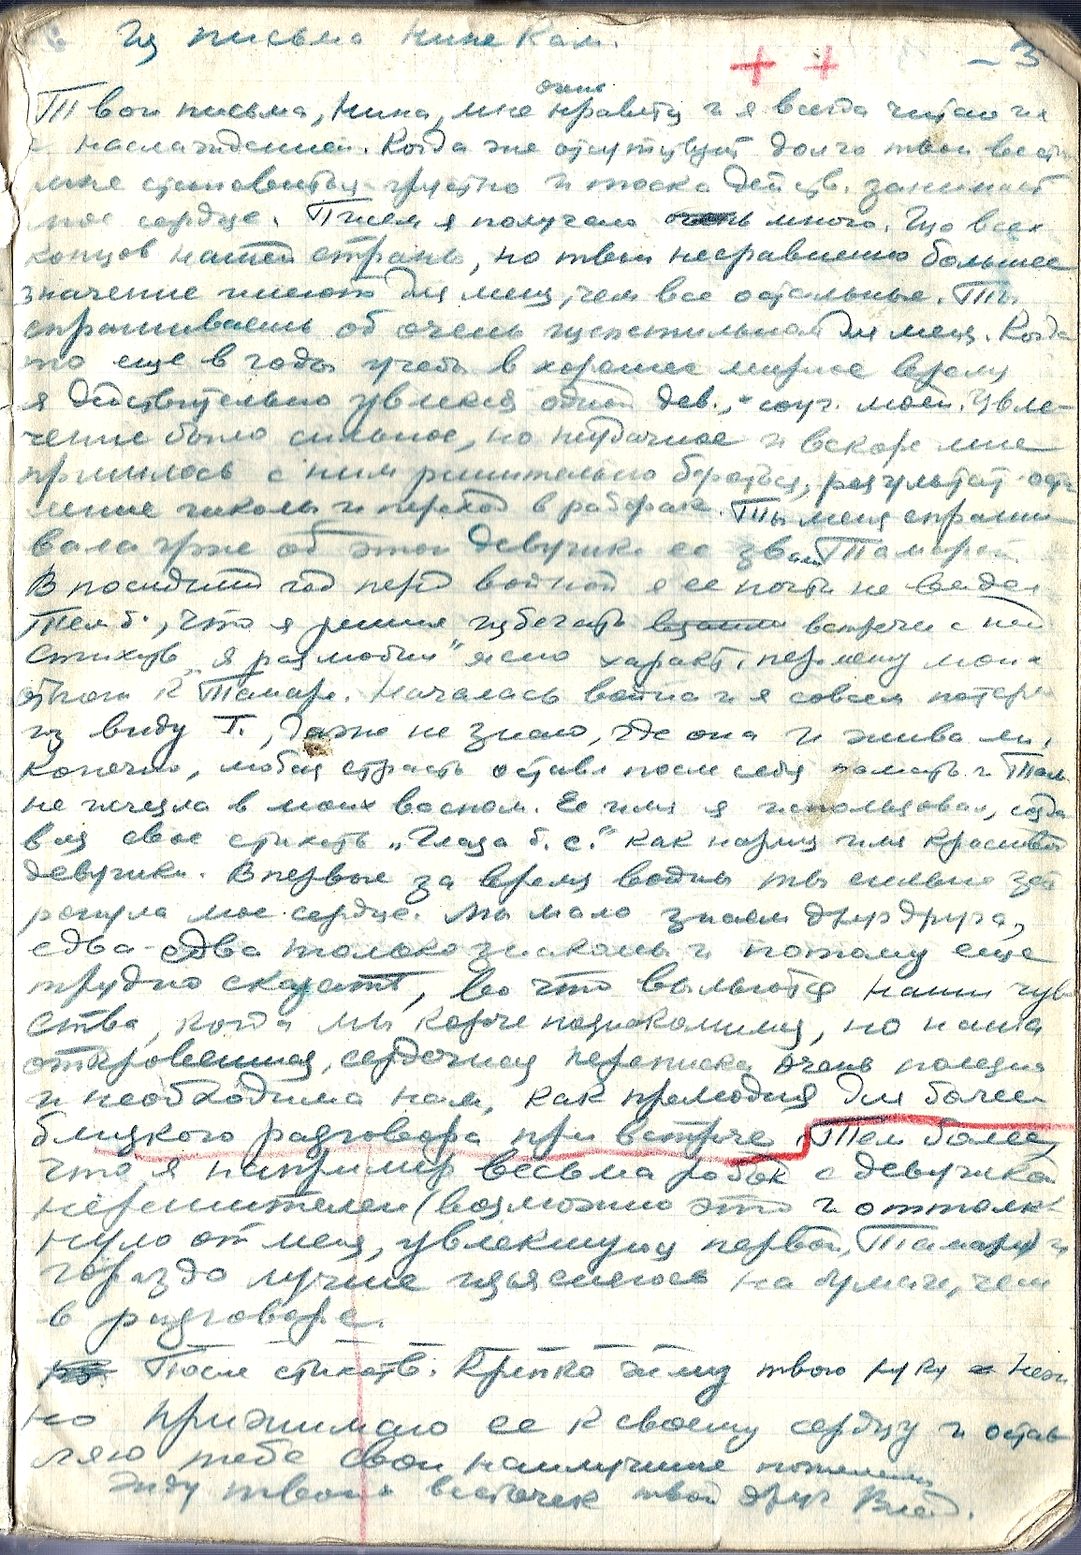 Из письма Нине Кам.
– 3
очень
Твои письма, Нина, мне нравятся и я всегда читаю их
с наслаждением. Когда же отсутствуют долго твои вести
мне становится грустно и тоска действ. занимает
мое сердце. Писем я получаю много. Изо всех
концов нашей страны, но твои несравненно большее
значение имеют для меня, чем все остальные. Ты
спрашиваешь об очень щепетильном для меня. Когда
то еще в годы учебы в хорошее мирное время
я действительно увлекся одной дев., соуч. моей. Увле-
чение было сильное, но неудачное и вскоре мне
пришлось с ним решительно бороться, результат – остав
ление школы и переход в рабфак. Ты меня спраши
вала уже об этой девушке ее звали Тамарой
В последний год перед войной я ее почти не видел
Тем б., что я решил избегать встречи с ней
Стихотв. „Я разлюбил" ясно характ. перемену моих
отнош к Тамаре. Началась война и я совсем потерял
из виду Т., даже не знаю, где она и жива ли.
Конечно, любая страсть оставл после себя память и Там.
не исчезла в моих воспом. Ее имя я использовал, созда
вая свое стихотв „Глаза б. с." как нариц имя красивой
девушки. Впервые за время войны ты сильно зат
ронула мое сердце. Мы мало знаем друг друга,
едва-едва только знакомы и потому еще
трудно сказать, во что выльются наши чув
ства, когда мы короче познакомимся, но наша
откровенная, сердечная переписка очень полезна
и необходима нам, как прелюдия для более
близкого разговора при встрече. Тем более,
что я например весьма робок с девушкой
нерешителен (возможно это и оттолк
нуло от меня, увлекшуюся первой, Тамару) и
гораздо лучше изъясняюсь на бумаге, чем
в разговоре.
После стихотв. Крепко жму твою руку неж
но прижимаю ее к своему сердцу и остав
ляю тебе свои наилучшие пожелания
Жду твоих весточек твой друг Влад.